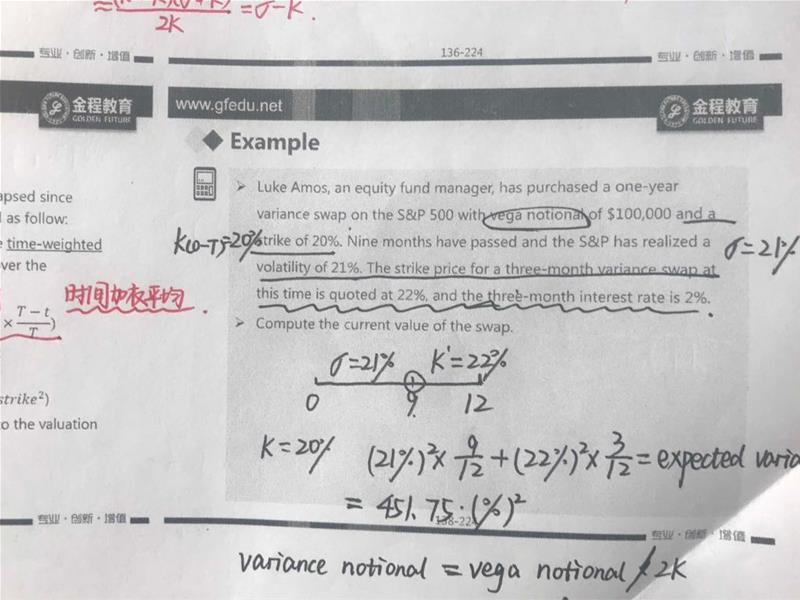 = σ-K.
2K
专业·创新·增值
136-224
专业·创新·增值
金程教育
GOLDEN FUTURE
www.gfedu.net
金程教育
GOLDEN FUTURE
Example
apsed since
d as follow:
e time-weighted
over the
时间加权平均.
× T-t/T)
strike²)
to the valuation
Luke Amos, an equity fund manager, has purchased a one-year
variance swap on the S&P 500 with vega notional of $100,000 and a
K(0-T)=20%
strike of 20%. Nine months have passed and the S&P has realized a
σ=21%
volatility of 21%. The strike price for a three-month variance swap at
this time is quoted at 22%, and the three-month interest rate is 2%.
Compute the current value of the swap.
σ=21% K'=22%
0 9 12
K=20% (21%)²× 9/12 + (22%)²× 3/12 = expected varia
= 451.75·(%)²
专业·创新·增值
138-224
专业·创新·增值
variance notional = vega notional / 2K